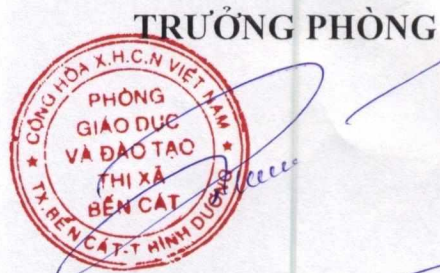 TRƯỞNG PHÒNG
CỘNG HÒA X.H.C.N VIỆT NAM
PHÒNG
GIÁO DỤC
VÀ ĐÀO TẠO
THỊ XÃ
BẾN CÁT
★ TX.BẾN CÁT-T BÌNH DƯƠNG ★